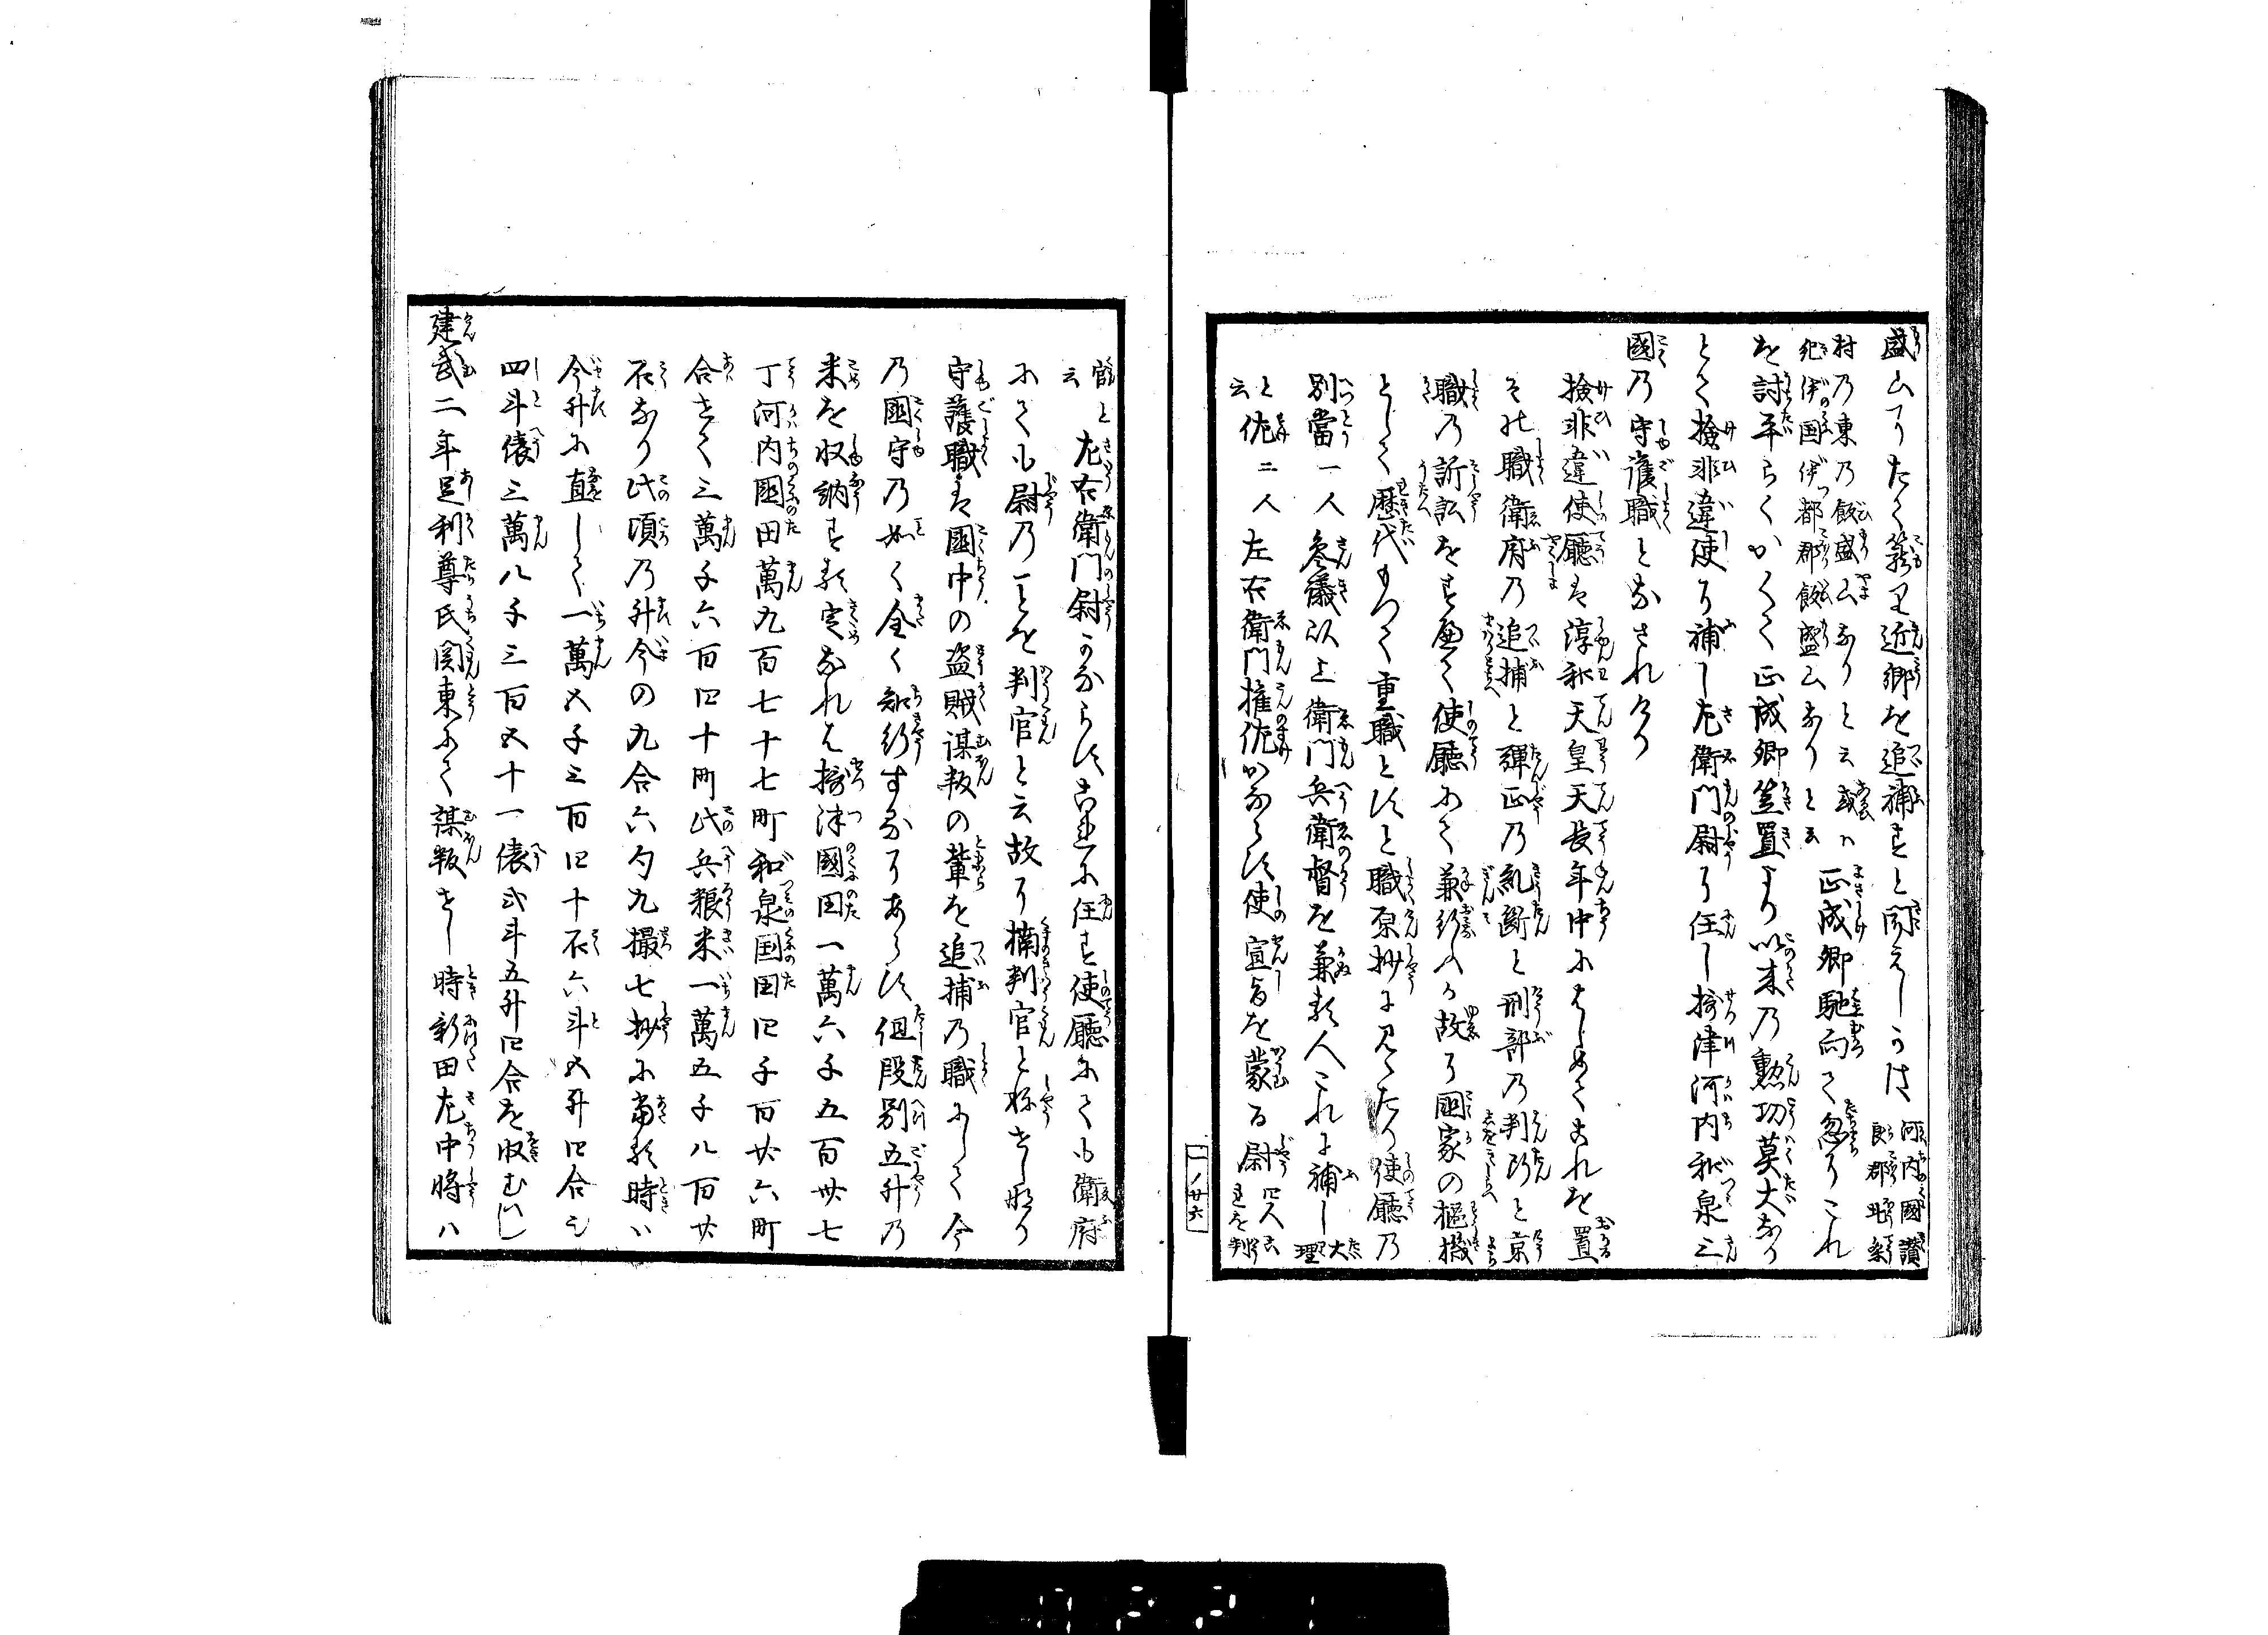 盛山にたて籠り近郷を追補すと聞えしかは河内國讃良郡北條
村乃東乃飯盛山なりと云或ハ紀伊国伊都郡飯盛山なりと云正成卿馳向て忽にこれ
を討平らくかくて正成卿笠置より以来乃勲功莫大なり
とて撿非違使に補し左衛門尉に任し摂津河内和泉三
國乃守護職となされけり
撿非違使廳ハ淳和天皇天長年中にはしめてこれを置
そは職衛府乃追捕と弾正乃糺断と刑部乃判断と京
職乃訴訟をすへて使廳にて兼行ふ故に國家の枢機
として歴代もつて重職とすと職原抄に見えたり使廳乃
別當一人参議以上衛門兵衛督を兼る人これに補し大理
と云佐二人左右衛門権佐かならす使宣旨を蒙る尉四人これを判
官と云左右衛門尉かならす是に任す使廳にても衛府
にても尉乃ことを判官と云故に楠判官と称せし也
守護職ハ國中の盗賊謀叛の輩を追補乃職にして今
乃國守乃如く全く知行するにあらす但段別五升乃
米を収納する定なれは摂津國田一萬六千五百廿七
丁河内國田萬九百七十七町和泉国田四千百廿六町
合せて三萬千六百四十町此兵粮米一萬五千八百廿
石なり此頃乃升今の九合六勺九撮七抄に當る時ハ
今升に直して一萬五千三百四十石六斗五升四合也
四斗俵三萬八千三百五十一俵弐斗五升四合を収むへし
建武二年足利尊氏関東にて謀叛せし時新田左中将ハ
一ノ廿六